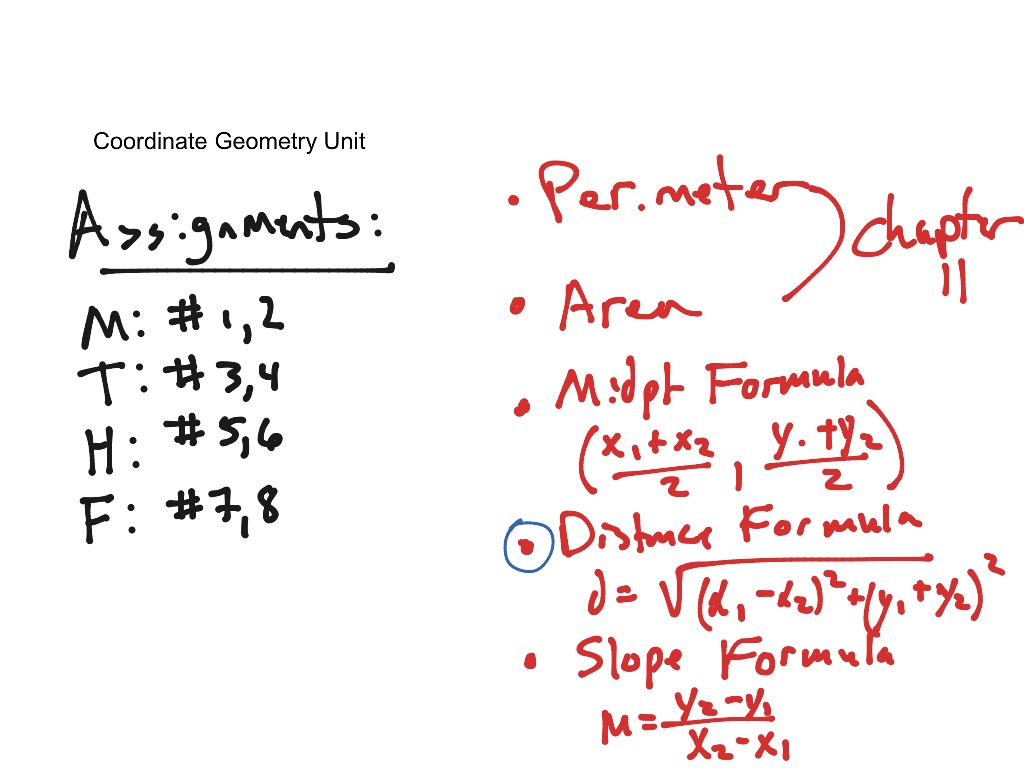 Coordinate Geometry Unit
Assignments:
M: # 1,2
T: # 3,4
H: # 5,6
F: # 7,8
• Perimeter
Chapter
11
• Area
• Midpt Formula
(x₁+x₂/2 , y.+y₂/2)
• Distance Formula
d = √(x₁-x₂)²+(y₁+y₂)²
• Slope Formula
M = y₂-y₁/x₂-x₁